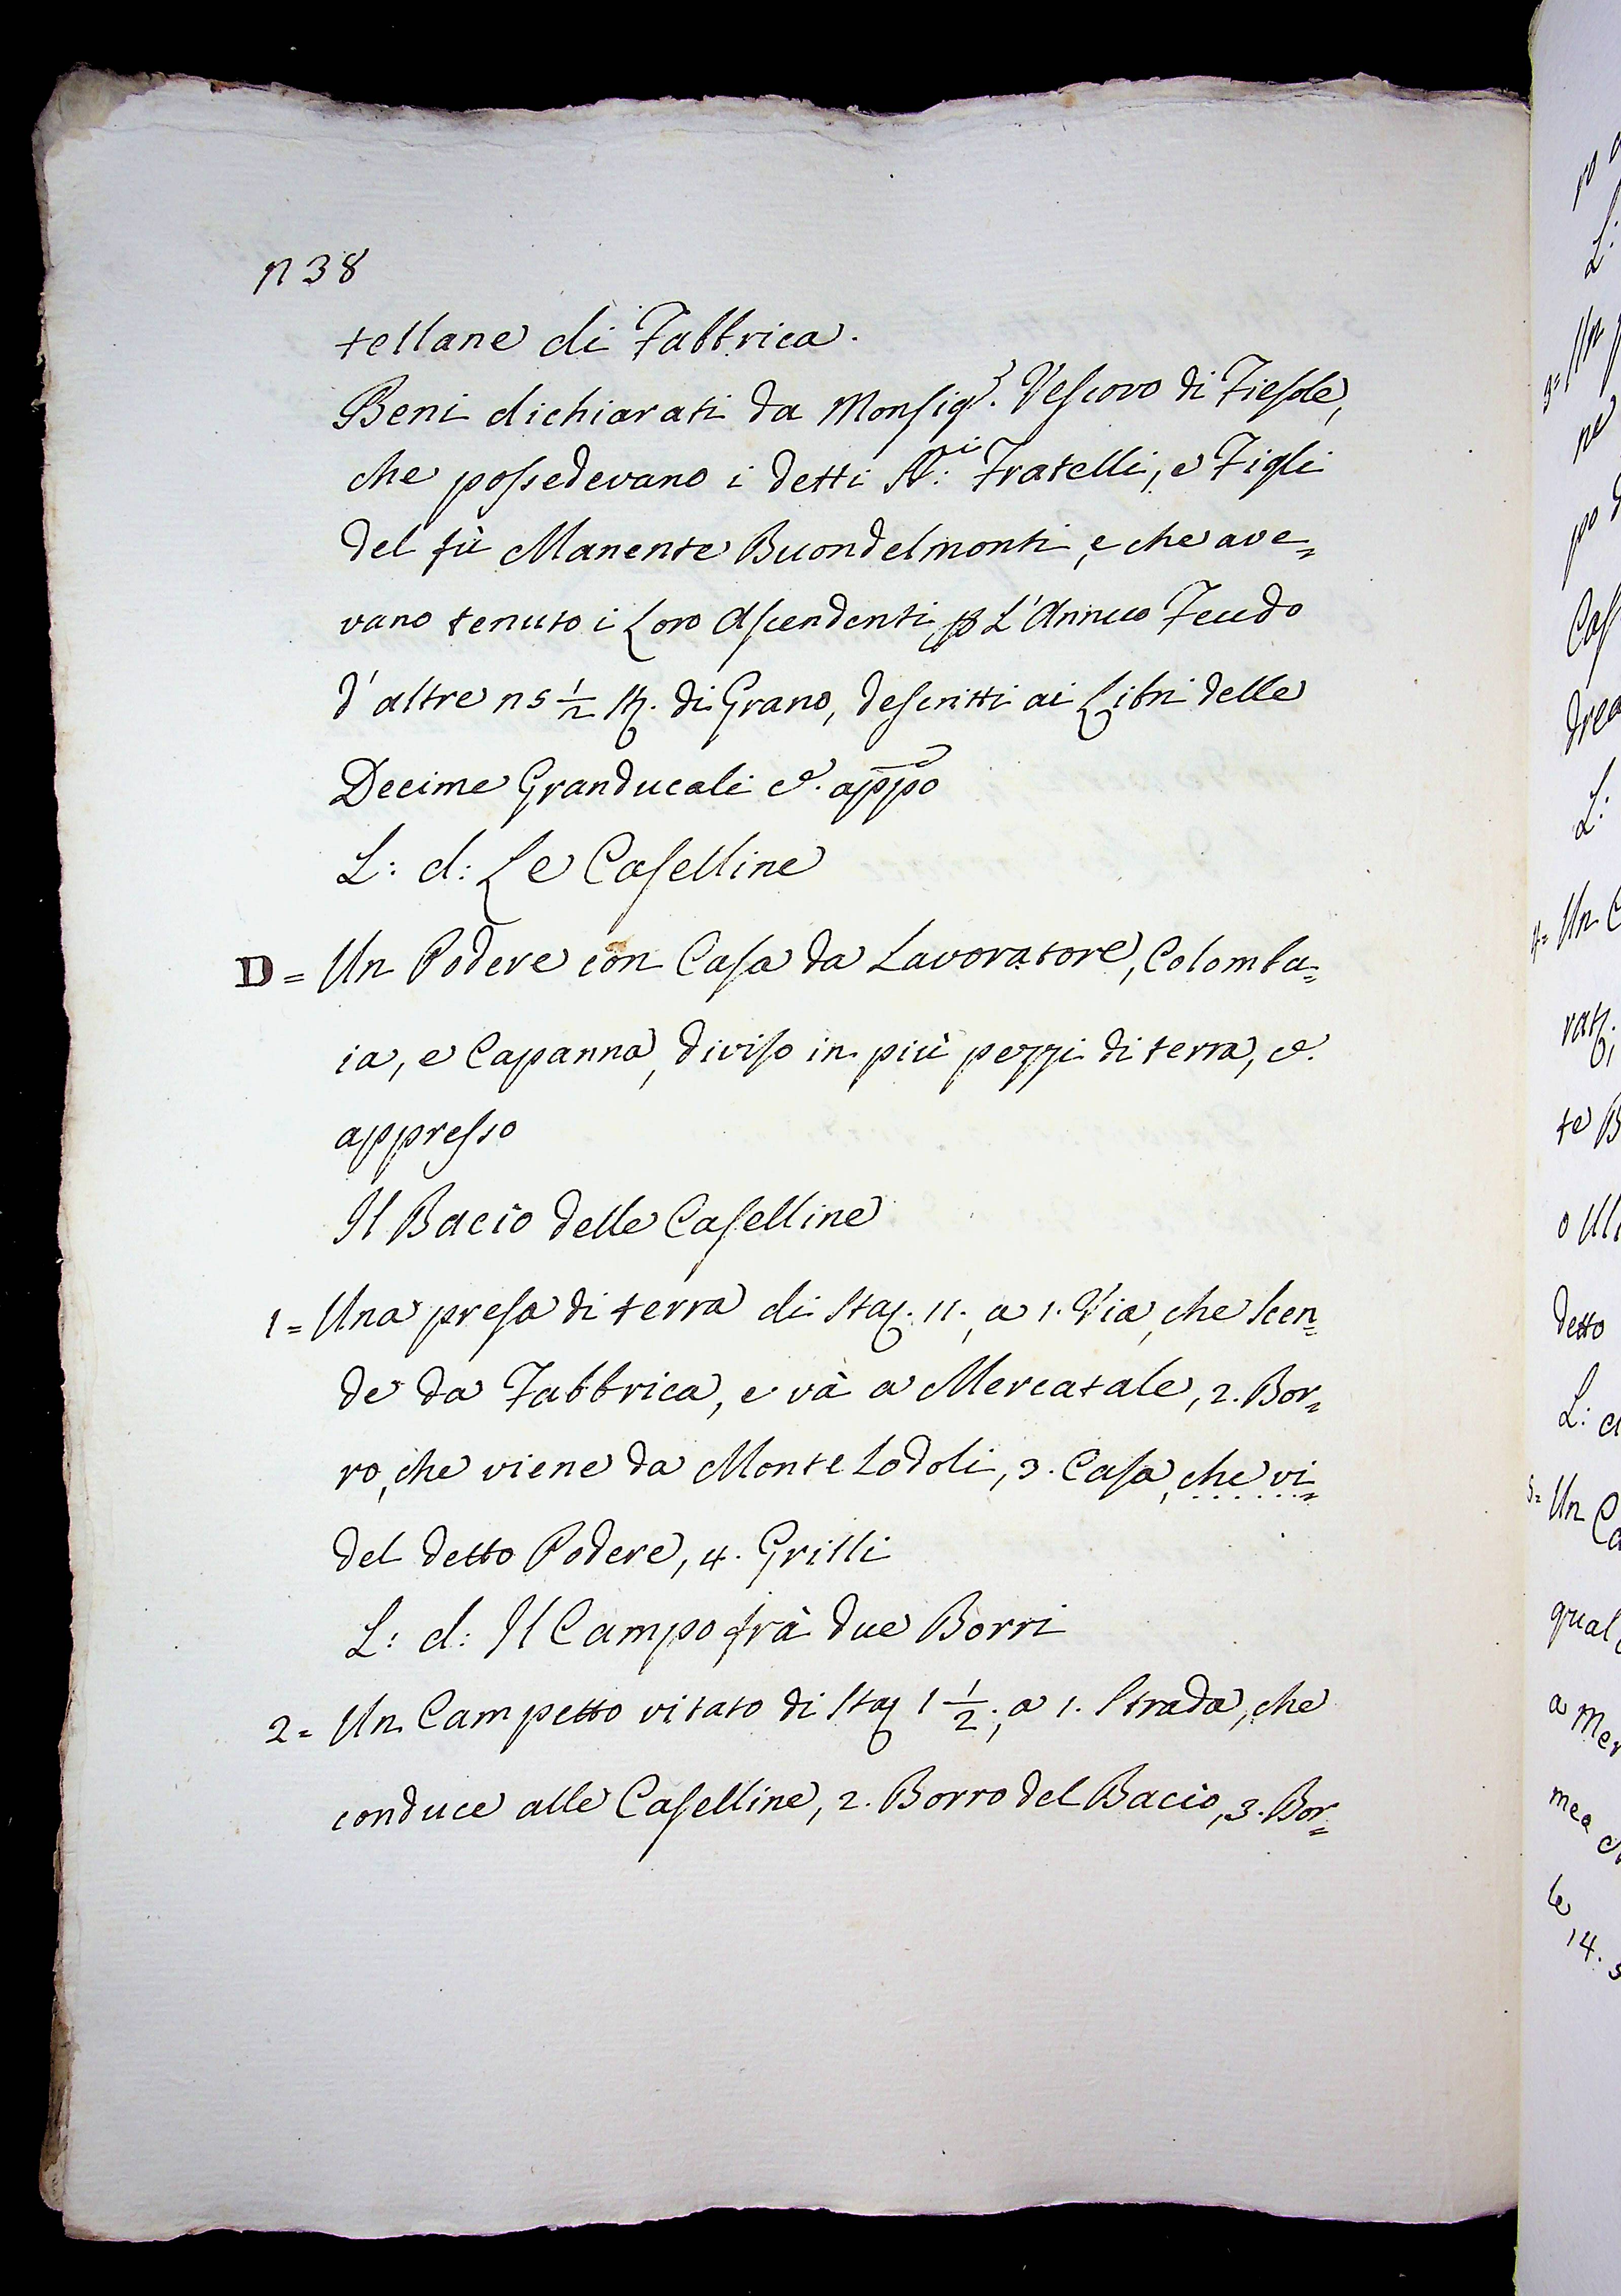 n 38
tellane di Fabbrica.
Beni dichiarati da Monsigr. Vescovo di Fiesole,
che possedevano i detti NN:i Fratelli, e Figli
del fù Manente Buondelmonti, e che ave=
vano tenuto i Loro Ascendenti p L'Annuo Feudo
d'altre n5 1/2 st. di Grano, descritti ai Libri delle
Decime Granducali e. appo
L: d: Le Caselline
D = Un Podere con Casa da Lavoratore, Colomba=
ia, e Capanna, diviso in più pezzi di terra, e.
appresso
Il Bacìo delle Caselline
1 = Una presa di terra di staj. 11., a 1. Via, che scen=
de da Fabbrica, e và a Mercatale, 2. Bor=
ro, che viene da Monte Lodoli, 3. Casa, che vi=
del detto Podere, 4. Grilli
L: d: Il Campo frà due Borri
2 = Un Campetto vitato di staj 1 1/2., a 1. Strada, che
conduce alle Caselline, 2. Borro del Bacìo, 3. Bor=